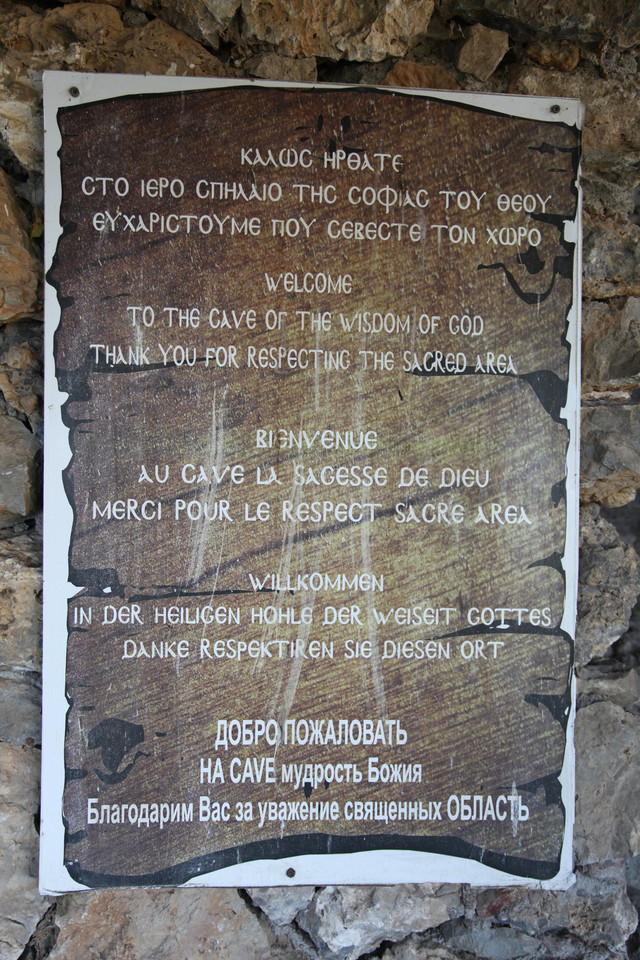 ΚΑΛΩС ΗΡΘΑΤΕ
СΤΟ ΙΕΡΟ СΠΗΛΑΙΟ ΤΗС СΟΦΙΑС ΤΟΥ ΘΕΟΥ
ΕΥΧΑΡΙСΤΟΥΜΕ ΠΟΥ СΕΒΕСΤΕ ΤΟΝ ΧΩΡΟ
WELCOME
TO THE CAVE OF THE WISDOM OF GOD
THANK YOU FOR RESPECTING THE SACRED AREA
BIENVENUE
AU CAVE LA SAGESSE DE DIEU
MERCI POUR LE RESPECT SACRE AREA
WILLKOMMEN
IN DER HEILIGEN HOHLE DER WEISEIT GOTTES
DANKE RESPEKTIREN SIE DIESEN ORT
ДОБРО ПОЖАЛОВАТЬ
НА CAVE мудрость Божия
Благодарим Вас за уважение священных ОБЛАСТЬ